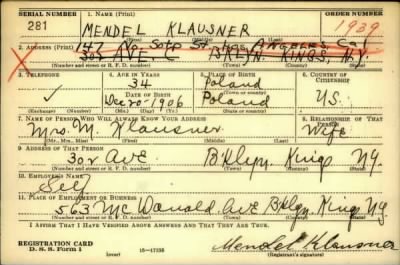 SERIAL NUMBER 1. NAME (Print) ORDER NUMBER
281 MENDEL KLAUSNER 1939
(First) (Middle) (Last)
2. ADDRESS (Print)
147 No Soto St. Los Angeles Cal
302 AVE. C BKLYN. KINGS, N.Y.
(Number and street or R. F. D. number) (Town) (County) (State)
3. TELEPHONE 4. AGE IN YEARS 5. PLACE OF BIRTH 6. COUNTRY OF CITIZENSHIP
34 Poland
DATE OF BIRTH (Town or county)
✓ Dec 20-1906 Poland U.S.
(Exchange) (Number) (Mo.) (Day) (Yr.) (State or country)
7. NAME OF PERSON WHO WILL ALWAYS KNOW YOUR ADDRESS 8. RELATIONSHIP OF THAT PERSON
Mrs. M. Klausner Wife
(Mr., Mrs., Miss) (First) (Middle) (Last)
9. ADDRESS OF THAT PERSON
302 Ave Bklyn. Kings NY
(Number and street or R. F. D. number) (Town) (County) (State)
10. EMPLOYER'S NAME
Self
11. PLACE OF EMPLOYMENT OR BUSINESS
563 McDonald Ave Bklyn. Kings NY
(Number and street or R. F. D. number) (Town) (County) (State)
I AFFIRM THAT I HAVE VERIFIED ABOVE ANSWERS AND THAT THEY ARE TRUE.
REGISTRATION CARD
D. S. S. Form 1 (over) 16—17105 Mendel Klausner
(Registrant's signature)